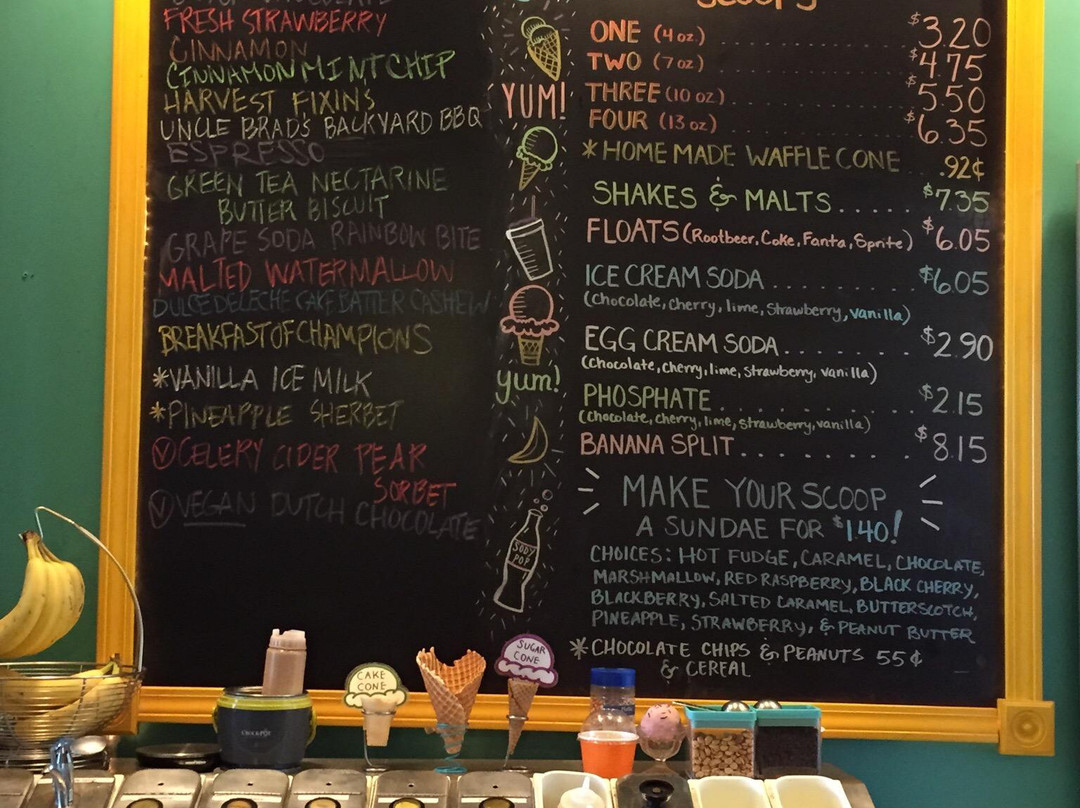 FRESH STRAWBERRY
CINNAMON
CINNAMON MINT CHIP
HARVEST FIXINS
UNCLE BRAD'S BACKYARD BBQ
ESPRESSO
GREEN TEA NECTARINE
BUTTER BISCUIT
GRAPE SODA RAINBOW BITE
MALTED WATERMALLOW
DULCE DE LECHE CAKE BATTER CASHEW
BREAKFAST OF CHAMPIONS
*VANILLA ICE MILK
*PINEAPPLE SHERBET
Ⓥ CELERY CIDER PEAR
SORBET
Ⓥ VEGAN DUTCH CHOCOLATE
YUM!
yum!
SODY
POP
Scoops
ONE (4 oz.) $3.20
TWO (7 oz) $4.75
THREE (10 oz) $5.50
FOUR (13 oz) $6.35
*HOME MADE WAFFLE CONE .92¢
SHAKES & MALTS..... $7.35
FLOATS (Rootbeer, Coke, Fanta, Sprite) $6.05
ICE CREAM SODA $6.05
(Chocolate, cherry, lime, Strawberry, vanilla)
EGG CREAM SODA........ $2.90
(chocolate, cherry, lime, strawberry, vanilla)
PHOSPHATE $2.15
(Chocolate, cherry, lime, strawberry, vanilla)
BANANA SPLIT.......... $8.15
MAKE YOUR SCOOP
A SUNDAE FOR $1.40!
CHOICES: HOT FUDGE, CARAMEL, CHOCOLATE,
MARSHMALLOW, RED RASPBERRY, BLACK CHERRY,
BLACKBERRY, SALTED CARAMEL, BUTTERSCOTCH,
PINEAPPLE, STRAWBERRY, & PEANUT BUTTER
*CHOCOLATE CHIPS & PEANUTS 55¢
& CEREAL
CAKE
CONE
SUGAR
CONE
CROCKPOT